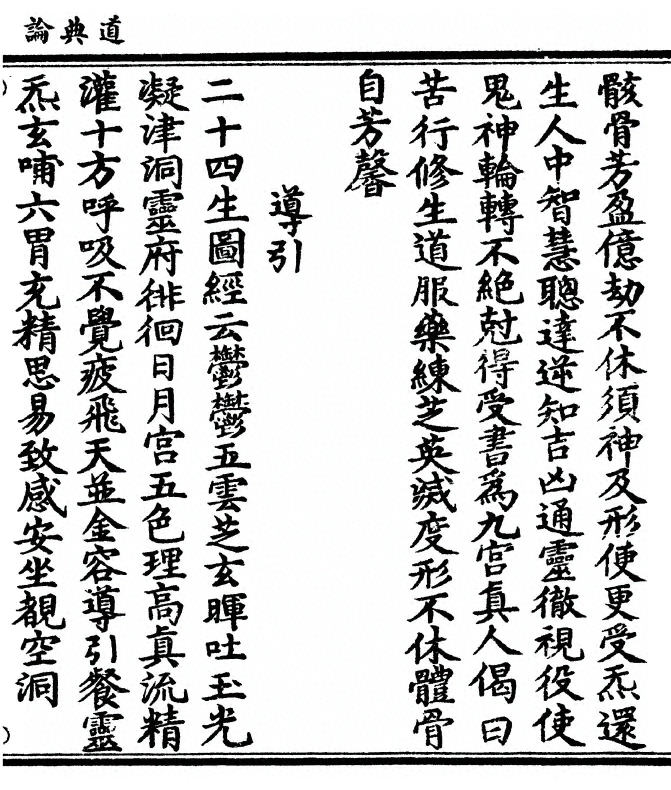 道典論
骸骨芳盈億劫不休須神及形便更受炁還
生人中智慧聰達逆知吉凶通靈徹視役使
鬼神輪轉不絕尅得受書為九宮真人偈曰
苦行修生道服藥練芝英滅度形不休體骨
自芳馨
導引
二十四生圖經云鬱鬱五雲芝玄暉吐玉光
凝津洞靈府徘徊日月宮五色理高真流精
灌十方呼吸不覺疲飛天並金容導引餐靈
炁玄哺六胃充精思易致感安坐覩空洞